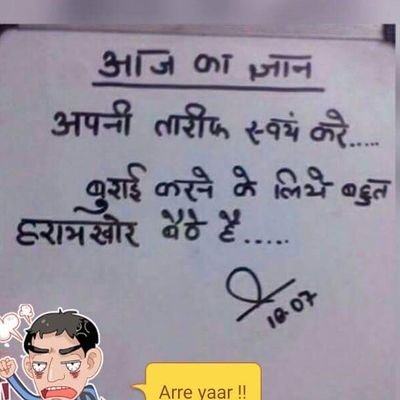 आज का ज्ञान
अपनी तारीफ स्वयं करे.....
बुराई करने के लिये बहुत
हरामखोर बैठे है.....
18-07
Arre yaar !!